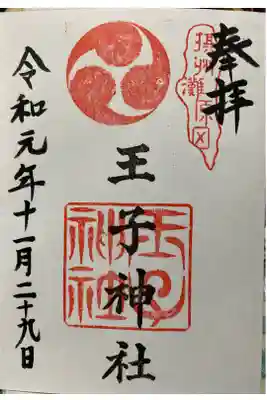 奉拝
摂州灘原区
王子神社
王子神社
令和元年十一月二十九日